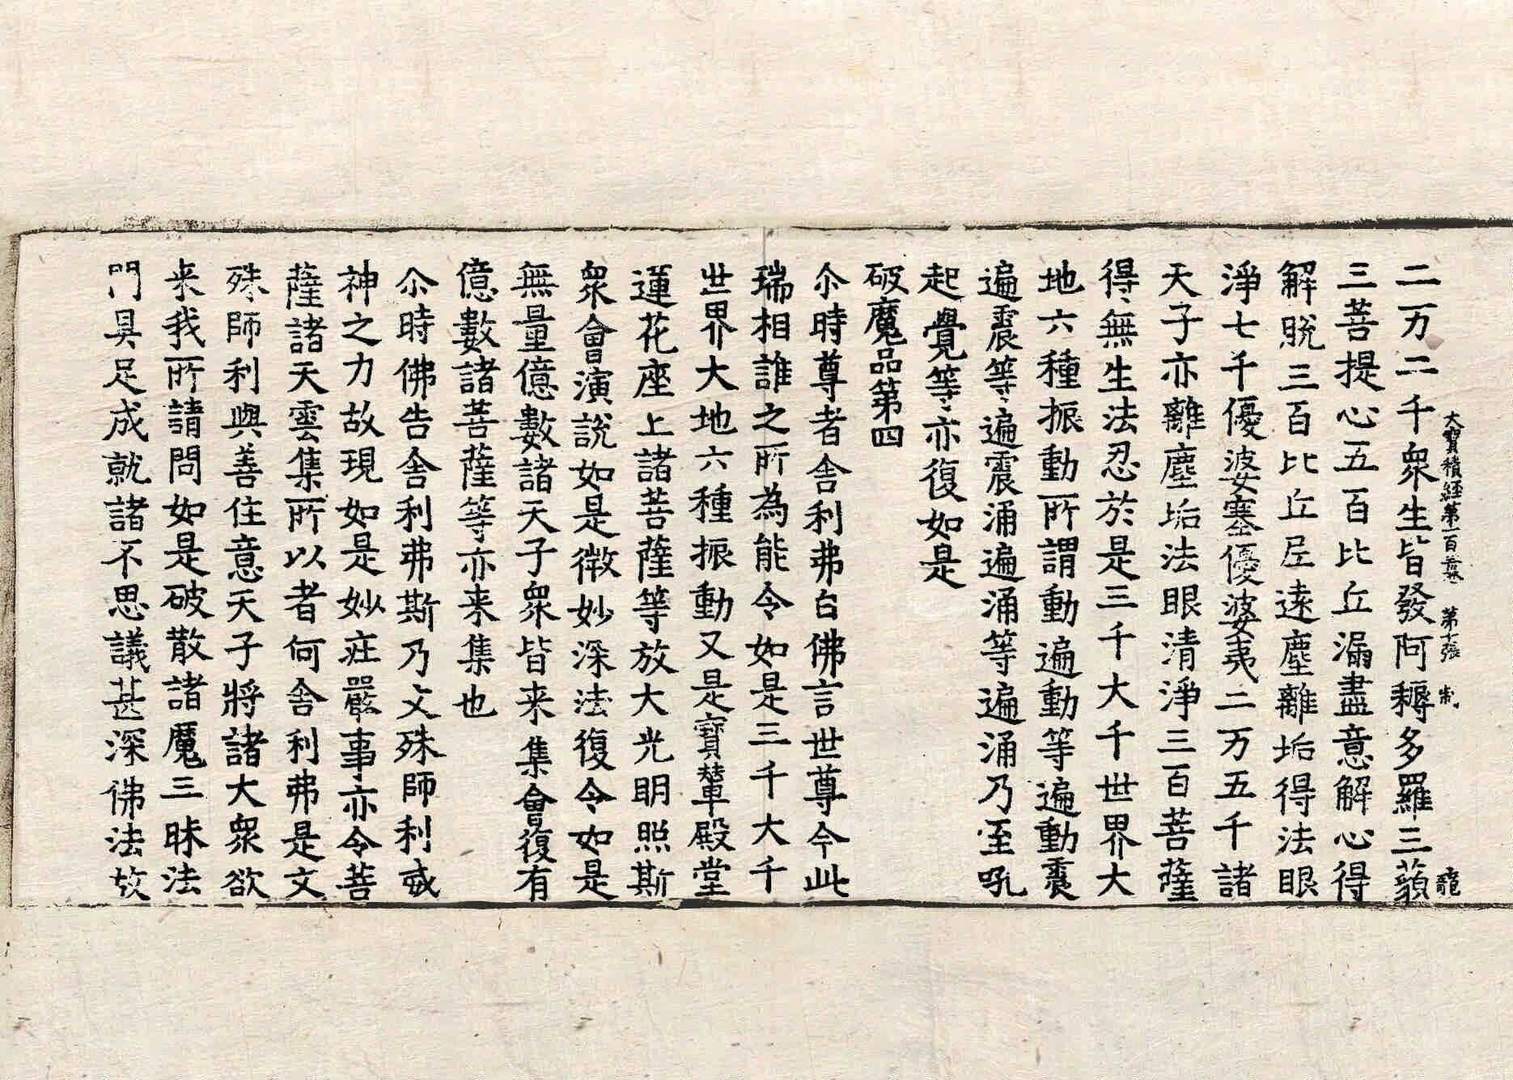 大寶積經第一百三卷 第十張 制 龍
二万二千衆生皆發阿耨多羅三藐
三菩提心五百比丘漏盡意解心得
解脫三百比丘尼遠塵離垢得法眼
淨七千優婆塞優婆夷二万五千諸
天子亦離塵垢法眼清淨三百菩薩
得無生法忍於是三千大千世界大
地六種振動所謂動遍動等遍動震
遍震等遍震涌遍涌等遍涌乃至吼
起覺等亦復如是
破魔品第四
尒時尊者舍利弗白佛言世尊今此
瑞相誰之所為能令如是三千大千
世界大地六種振動又是寶輦殿堂
蓮花座上諸菩薩等放大光明照斯
衆會演說如是微妙深法復令如是
無量億數諸天子衆皆来集會復有
億數諸菩薩等亦来集也
尒時佛告舍利弗斯乃文殊師利威
神之力故現如是妙莊嚴事亦令菩
薩諸天雲集所以者何舍利弗是文
殊師利與善住意天子將諸大衆欲
来我所請問如是破散諸魔三昧法
門具足成就諸不思議甚深佛法故